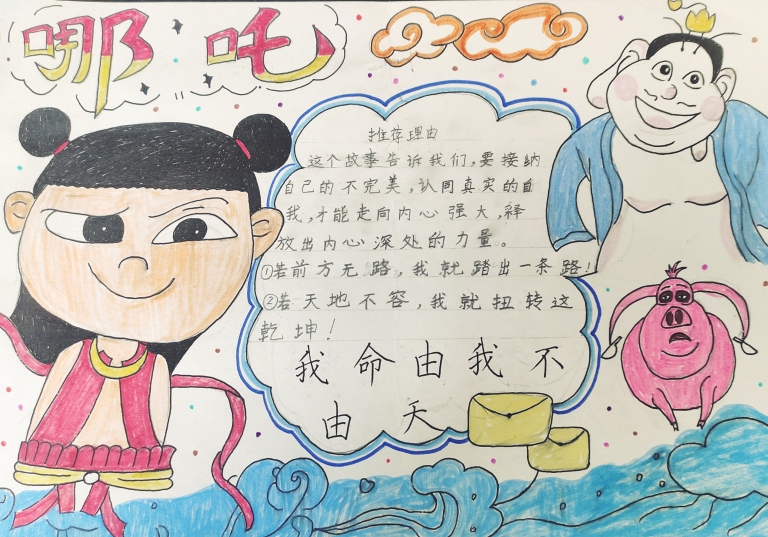 哪吒
推荐理由
这个故事告诉我们，要接纳
自己的不完美，认同真实的自
我，才能走向内心强大，释
放出内心深处的力量。
①若前方无路，我就踏出一条路！
②若天地不容，我就扭转这
乾坤！
我命由我不
由天